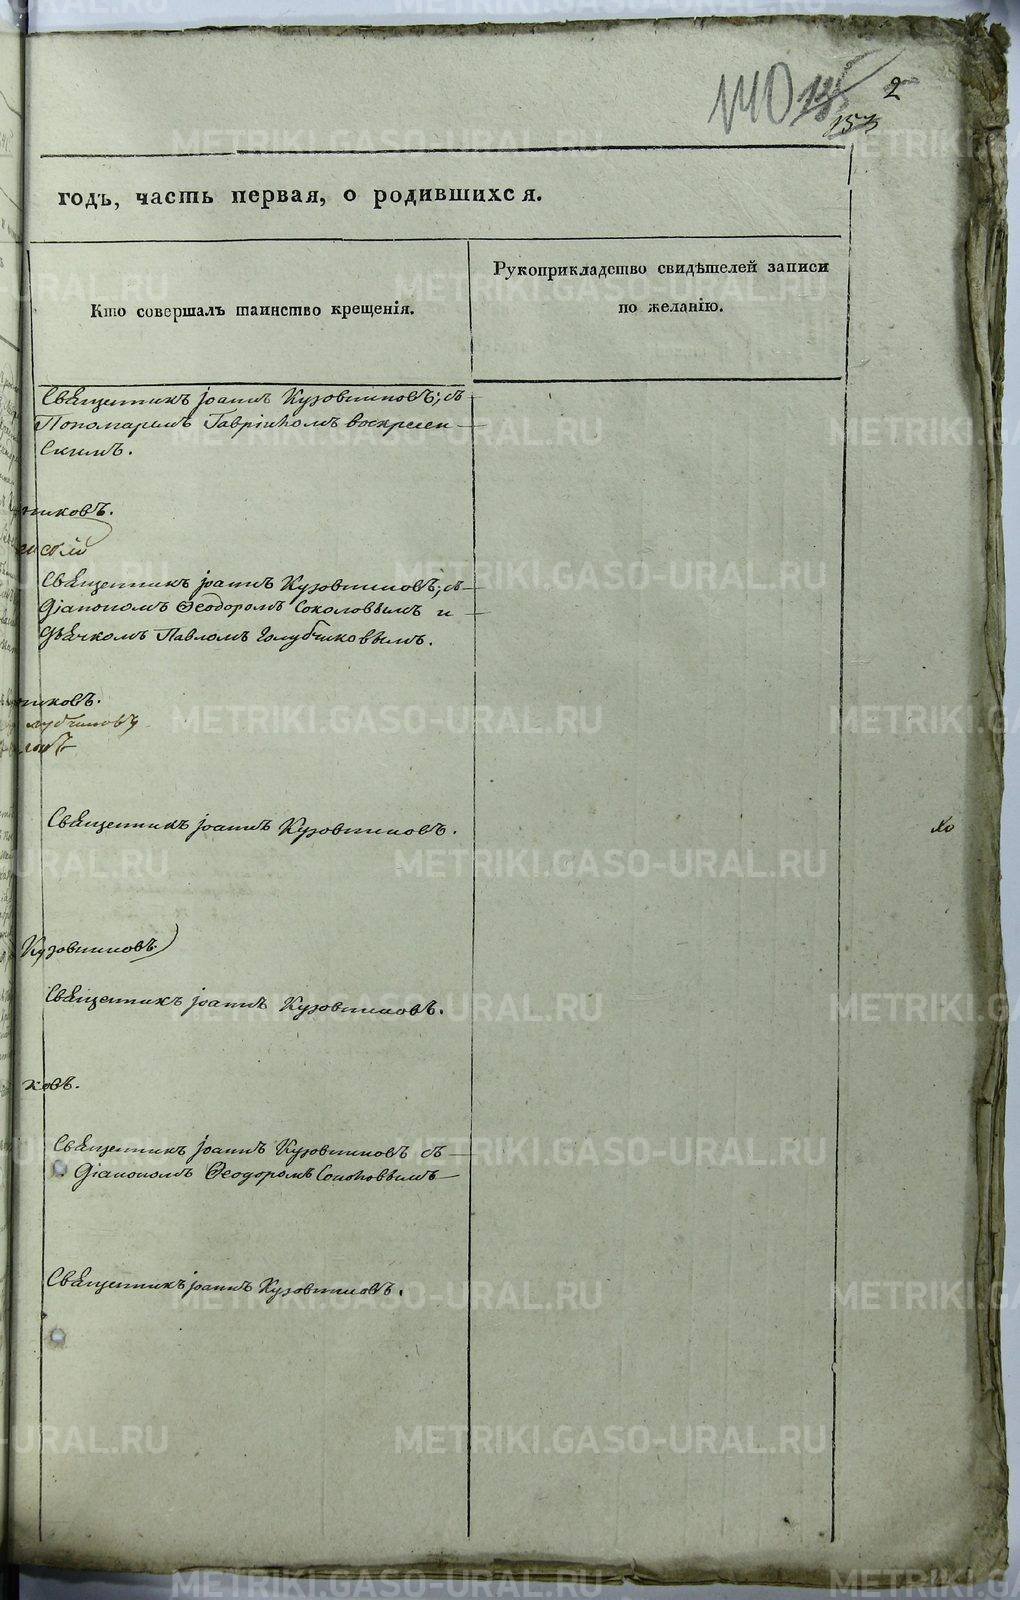 140 2
153
годъ, часть первая, о родившихся.
Кто совершалъ таинство крещенія.
Рукоприкладство свидѣтелей записи
по желанію.
Священникъ Іоаннъ Кузовниковъ; съ
Пономаремъ Гавріиломъ воскресен
скимъ.
никовъ.
Священникъ Іоаннъ Кузовниковъ; съ
Діакономъ Ѳеодоромъ Соколовымъ и
Дьячкомъ Павломъ Голубчиковымъ.
никовъ.
лубчиковъ
Священникъ Іоаннъ Кузовниковъ.
Хо
Кузовниковъ
Священникъ Іоаннъ Кузовниковъ.
ковъ.
Священникъ Іоаннъ Кузовниковъ съ
Діакономъ Ѳеодоромъ Соколовымъ
Священникъ Іоаннъ Кузовниковъ.
METRIKI.GASO-URAL.RU